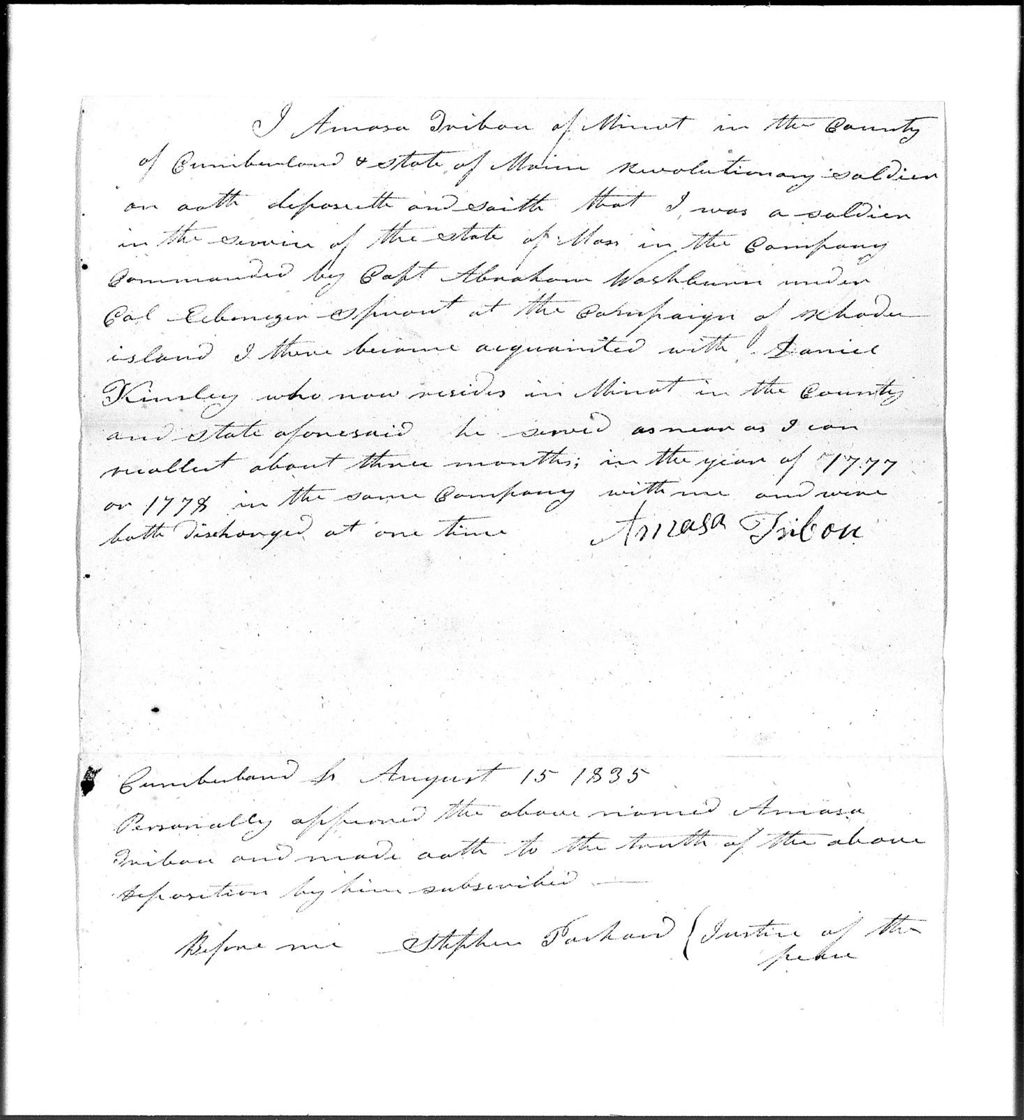 I Amasa Tribou of Minot in the County
of Cumberland & state of Maine revolutionary soldier
on oath deposeth and saith that I was a soldier
in the service of the state of Mass in the Company
Commanded by Capt Abraham Washburn under
Col Eebenezer Sprout at the Campaign of Rhode
island I there became acquainted with Daniel
Kinsley who now resides in Minot in the County
and state aforesaid he served as near as I can
recollect about three months; in the year of 1777
or 1778 in the same Company with me and were
both discharged at one time Amasa Tribou
Cumberland Ss August 15 1835
Personally appeared the above named Amasa
Tribou and made oath to the truth of the above
deposition by him subscribed —
Before me Stephen Packard { Justice of the
peace